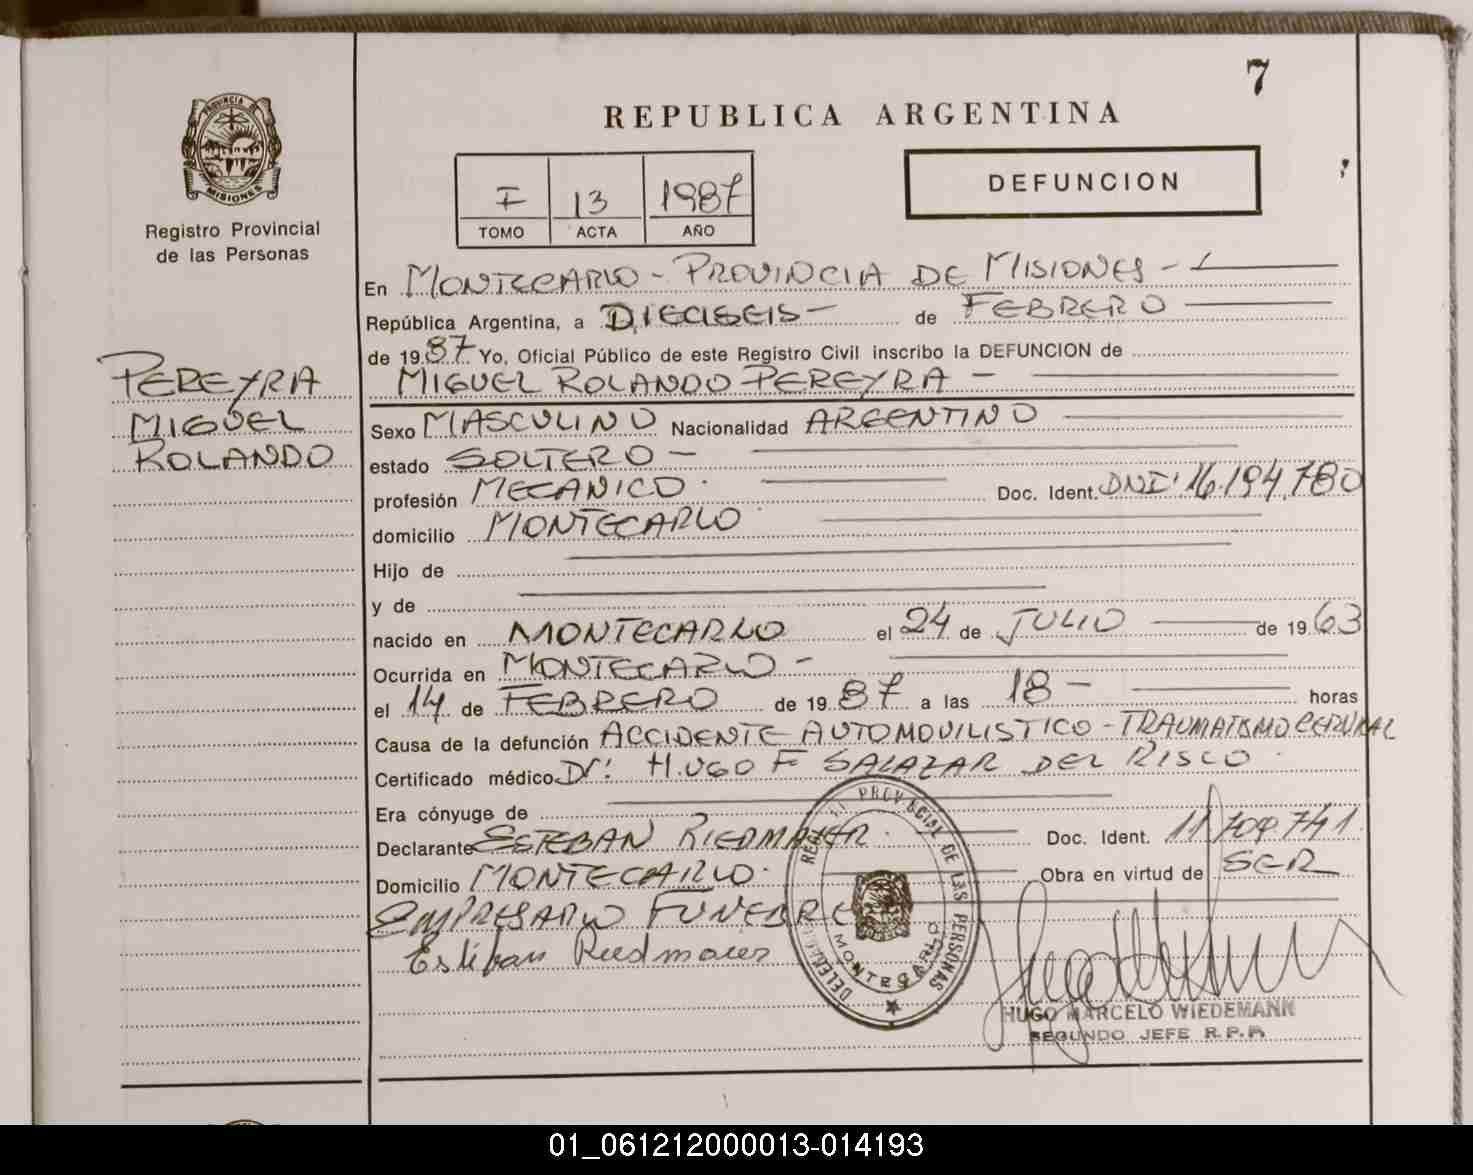 7
REPUBLICA ARGENTINA
I 13 1987
TOMO ACTA AÑO
DEFUNCION
PROVINCIA DE
MISIONES
Registro Provincial
de las Personas
PEREYRA
MIGUEL
ROLANDO
En MONTECARLO - PROVINCIA DE MISIONES -
República Argentina, a DIECISEIS - de FEBRERO
de 1987 Yo, Oficial Público de este Registro Civil inscribo la DEFUNCION de
MIGUEL ROLANDO PEREYRA -
Sexo MASCULINO Nacionalidad ARGENTINO
estado SOLTERO -
profesión MECANICO. Doc. Ident. DNI: 16.194.780
domicilio MONTECARLO.
Hijo de
y de
nacido en MONTECARLO el 24 de JULIO de 1963
Ocurrida en MONTECARLO -
el 14 de FEBRERO de 1987 a las 18 - horas
Causa de la defunción ACCIDENTE AUTOMOVILISTICO - TRAUMATISMO CEREBRAL
Certificado médico Dr: HUGO F SALAZAR DEL RISCO.
Era cónyuge de
Declarante ESTEBAN RIEDMAIER. Doc. Ident. 11.709.741.
Domicilio MONTECARLO. Obra en virtud de SER
EMPRESARIO FUNEBRE
Esteban Riedmaier
PROVINCIAL DE LAS PERSONAS
MONTECARLO
HUGO MARCELO WIEDEMANN
SEGUNDO JEFE R.P.P.
01_061212000013-014193